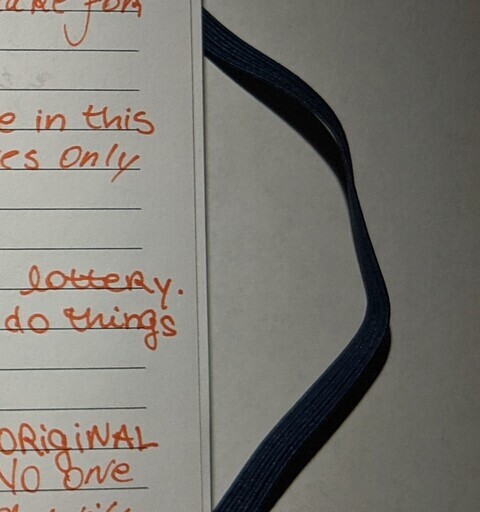 for
in this
Only
lottery.
do things
ORIGINAL
NO ONE